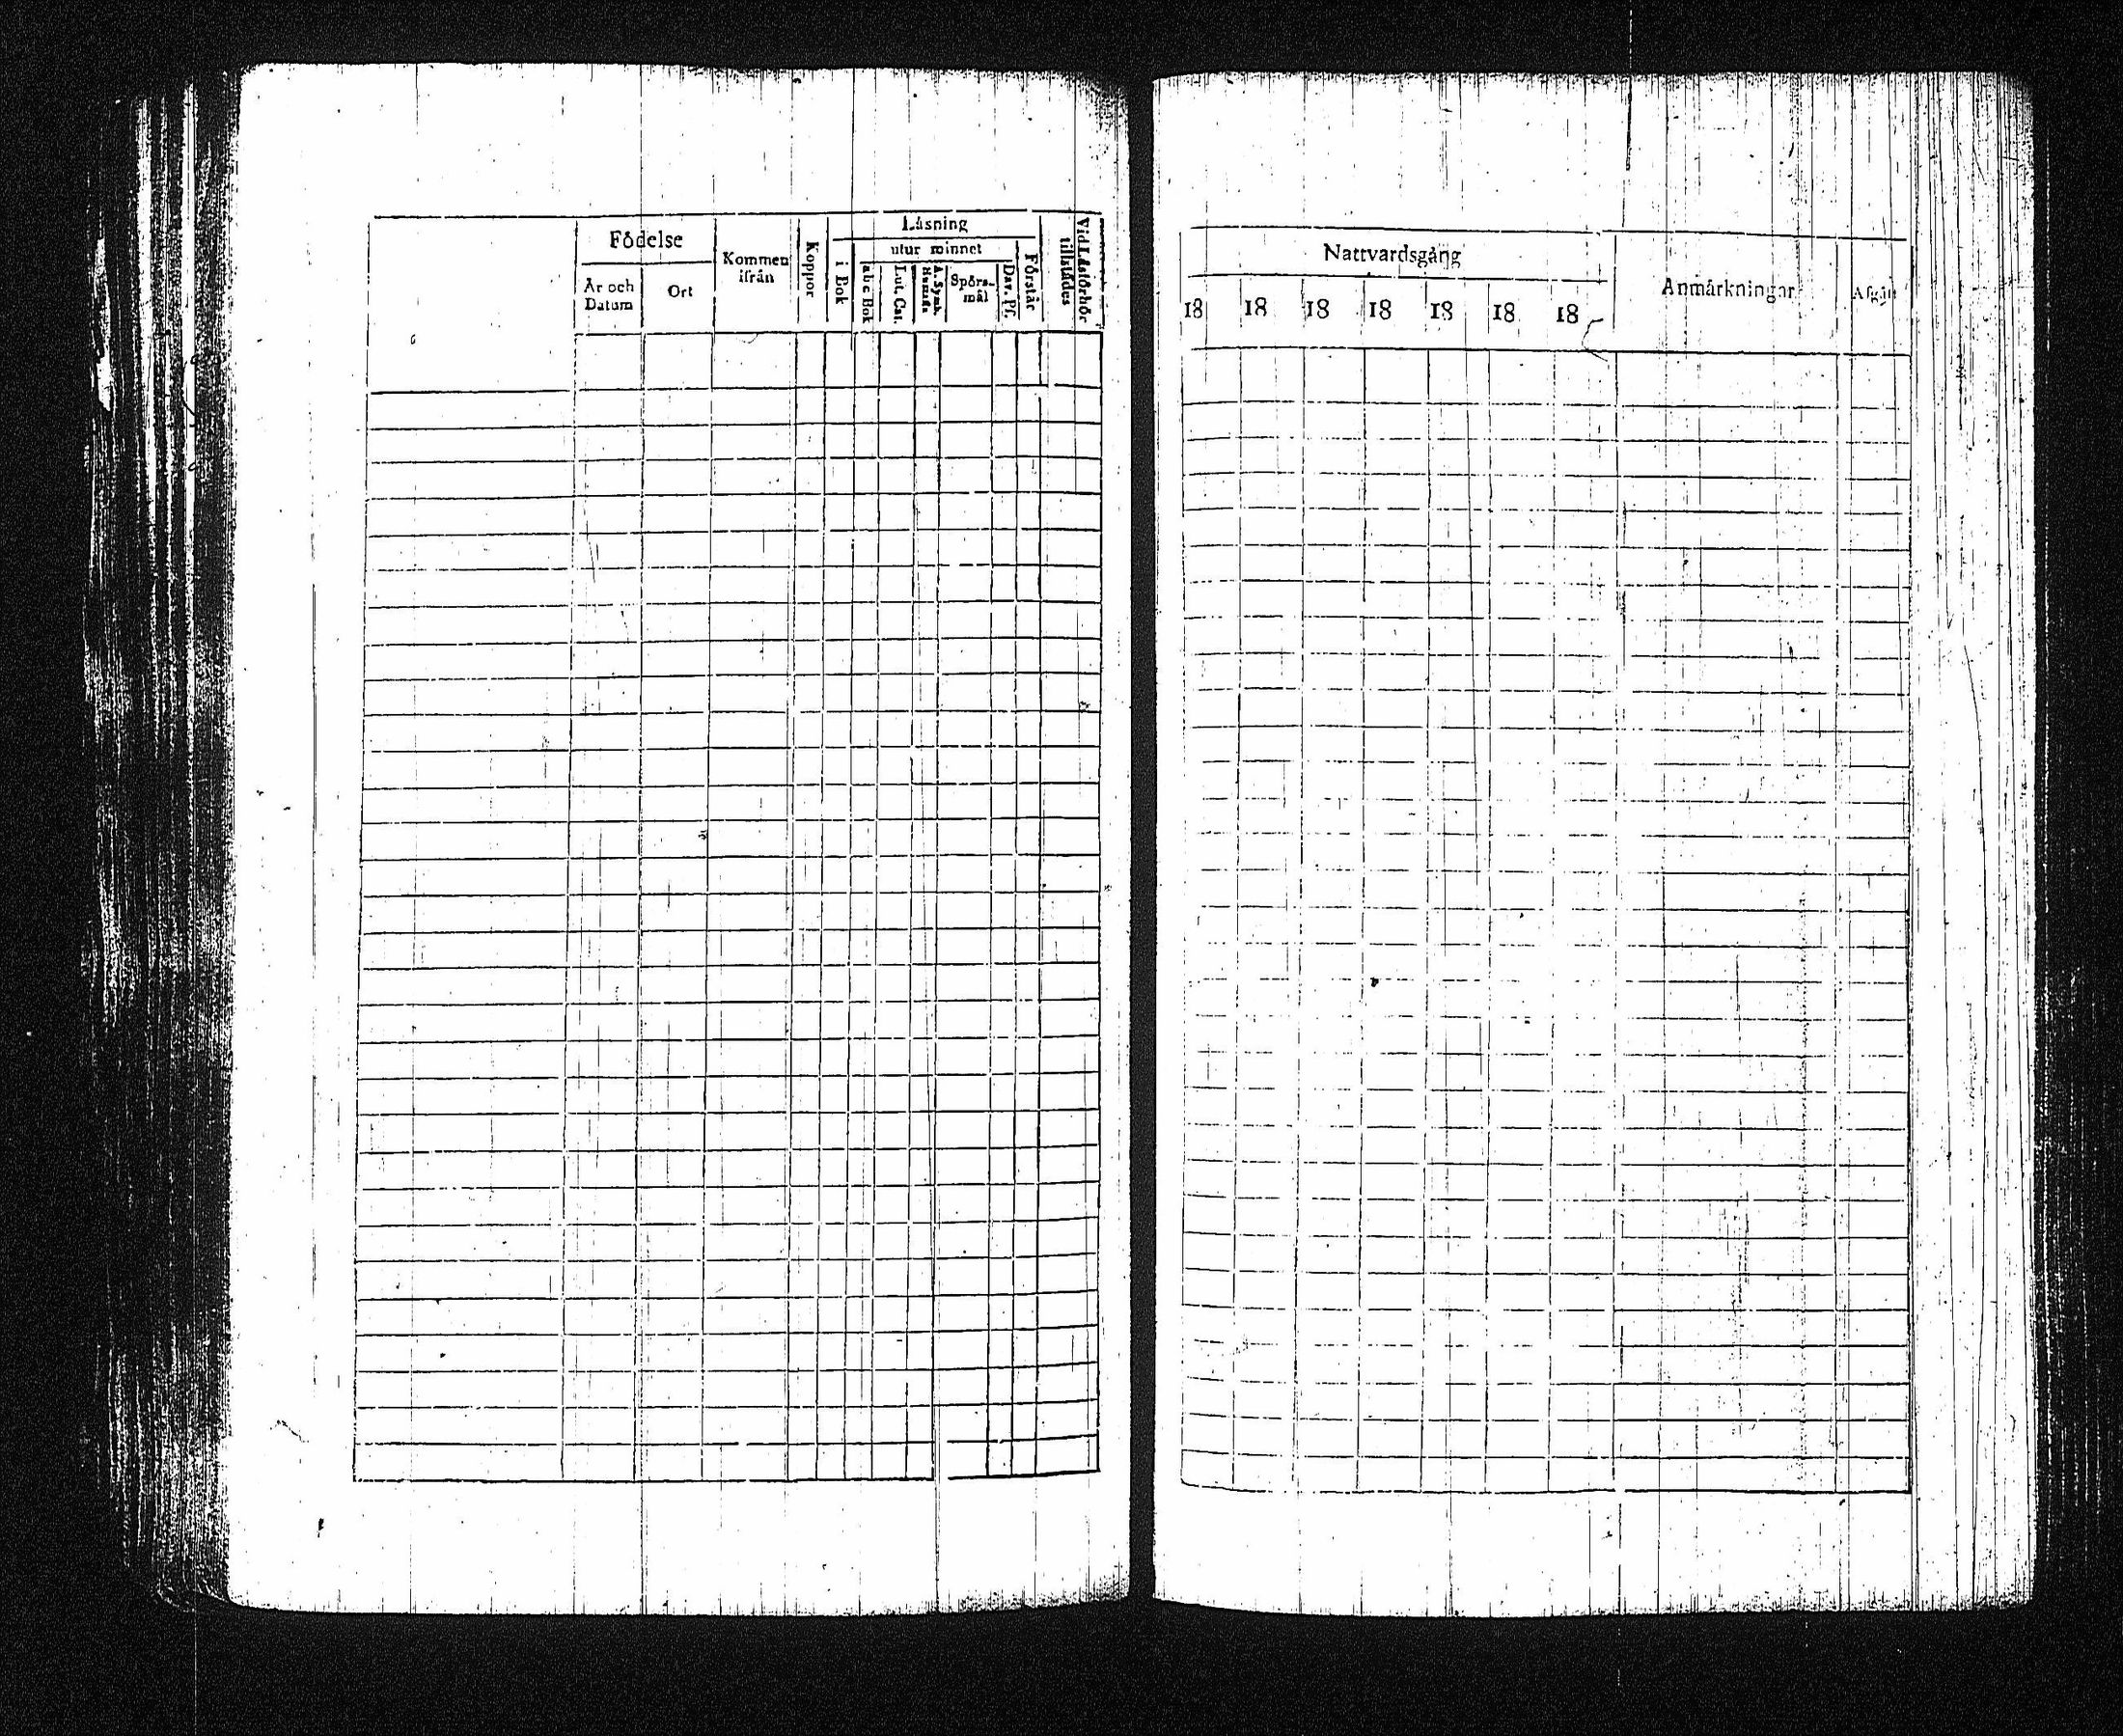 Födelse
År och
Datum
Ort
Kommen
ifrån
Koppor
Läsning
i Bok
utur minnet
abc Bok
Lut. Cat.
A. Symb.
Hustafla
Spörs-
mål
Dav. Ps.
Förstår
Vid Läsförhör
tillstädes
Nattvardsgång
18 18 18 18 18 18 18
Anmärkningar
Afgått